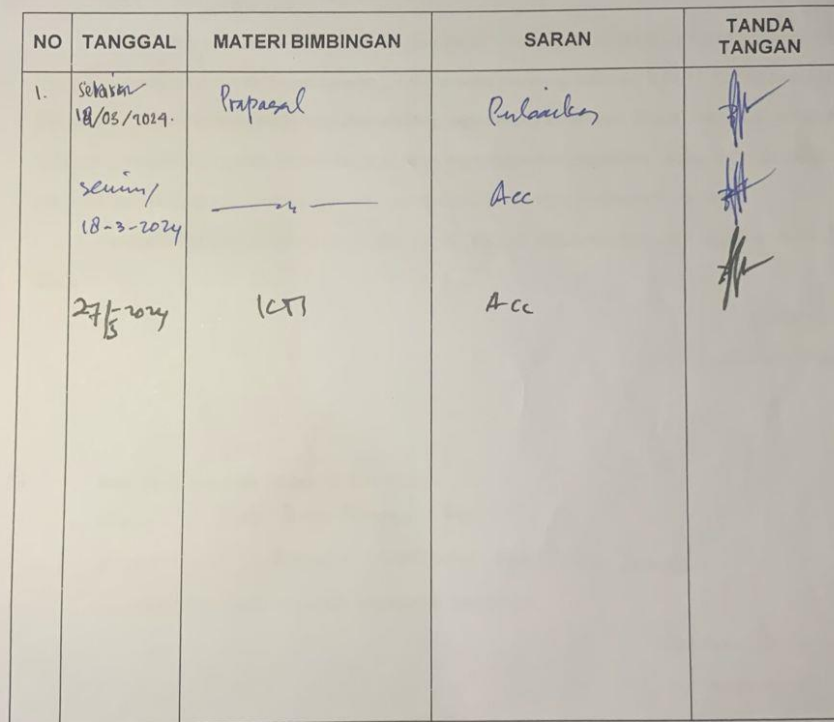 NO TANGGAL MATERI BIMBINGAN SARAN TANDA TANGAN
1. Selasa 18/03/2024. Proposal Perbaikan
Senin/ 18-3-2024 Acc
27/5-2024 KTI Acc